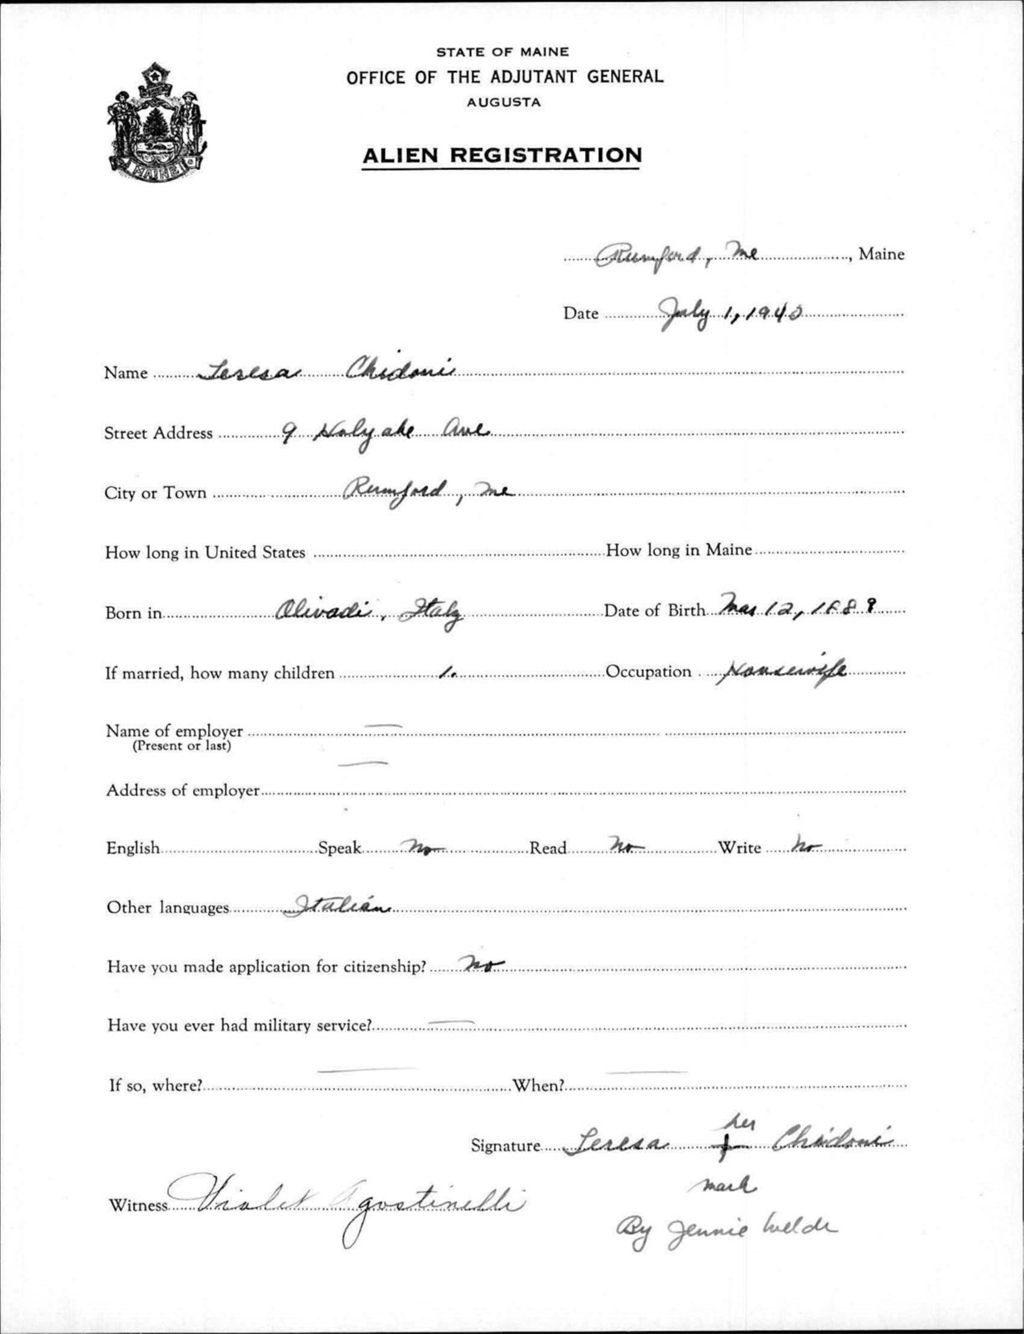 STATE OF MAINE
OFFICE OF THE ADJUTANT GENERAL
AUGUSTA
ALIEN REGISTRATION
MAINE
Rumford, Me, Maine
Date July 1, 1940
Name Teresa Chidoni
Street Address 9 Holyoke Ave
City or Town Rumford, Me
How long in United States How long in Maine
Born in Olivadi, Italy Date of Birth Mar 12, 1889
If married, how many children 1. Occupation Housewife
Name of employer —
(Present or last)
Address of employer —
English Speak No Read No Write No
Other languages Italian
Have you made application for citizenship? No
Have you ever had military service? —
If so, where? — When? —
her
Signature Teresa + Chidoni
mark
Witness Violet Agostinelli
By Jennie Welde